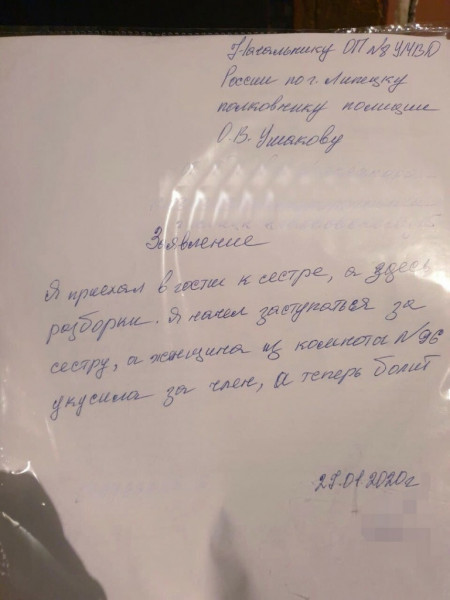 Начальнику ОП №8 УМВД
России по г. Липецку
полковнику полиции
О.В. Ушакову
Заявление
Я приехал в гости к сестре, а здесь
разборки. Я начал заступаться за
сестру, а женщина из комнота №96
укусила за член, а теперь болит
27.01.2020г